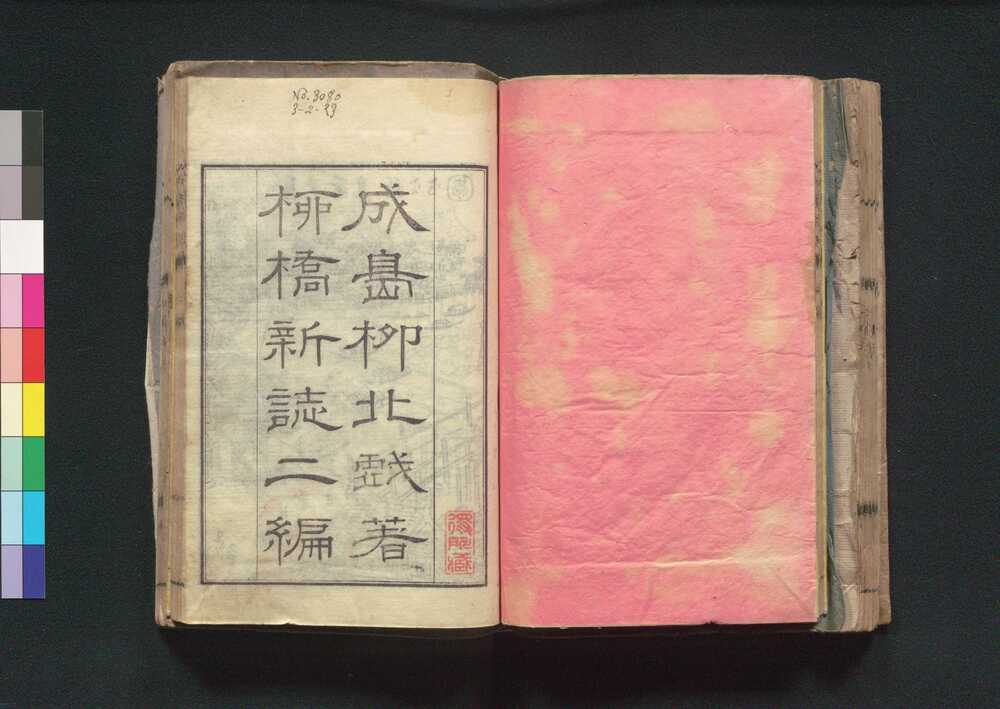 No. 3080
3-2-23
成島柳北戯著
柳橋新誌二編